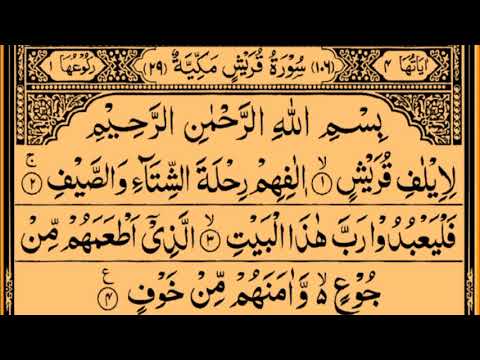 اٰيَاتُهَا ٤ (١٠٦) سُوْرَةُ قُرَيْشٍ مَكِّيَّةٌ (٢٩) رُكُوْعُهَا ١
بِسْمِ اللّٰهِ الرَّحْمٰنِ الرَّحِيْمِ
لِاِيْلٰفِ قُرَيْشٍ ۙ﴿١﴾ اٖلٰفِهِمْ رِحْلَةَ الشِّتَآءِ وَالصَّيْفِ ۚ﴿٢﴾
فَلْيَعْبُدُوْا رَبَّ هٰذَا الْبَيْتِ ۙ﴿٣﴾ الَّذِيْٓ اَطْعَمَهُمْ مِّنْ
جُوْعٍ ۙ وَّاٰمَنَهُمْ مِّنْ خَوْفٍ ﴿٤﴾ ع